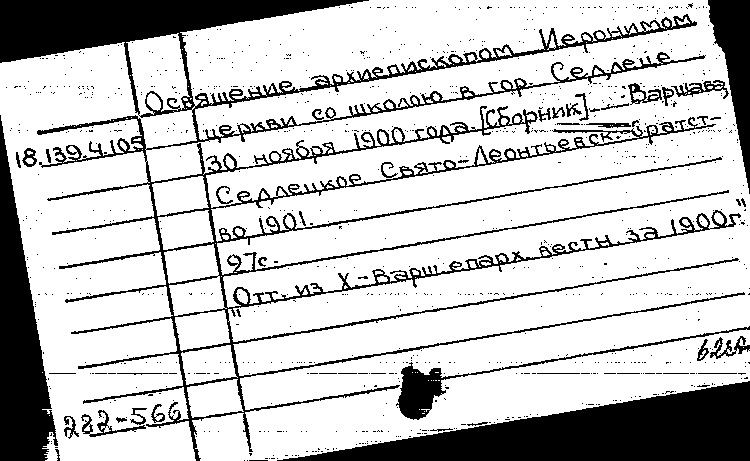 Освящение архиепископом Иеронимом
церкви со школою в гор. Седлеце
18.139.4.105
30 ноября 1900 года. [Сборник]. Варшава,
Седлецкое Свято-Леонтьевск. братст-
во, 1901.
97с.
"Отт. из Х.-Варш. епарх. вестн. за 1900г."
282-566